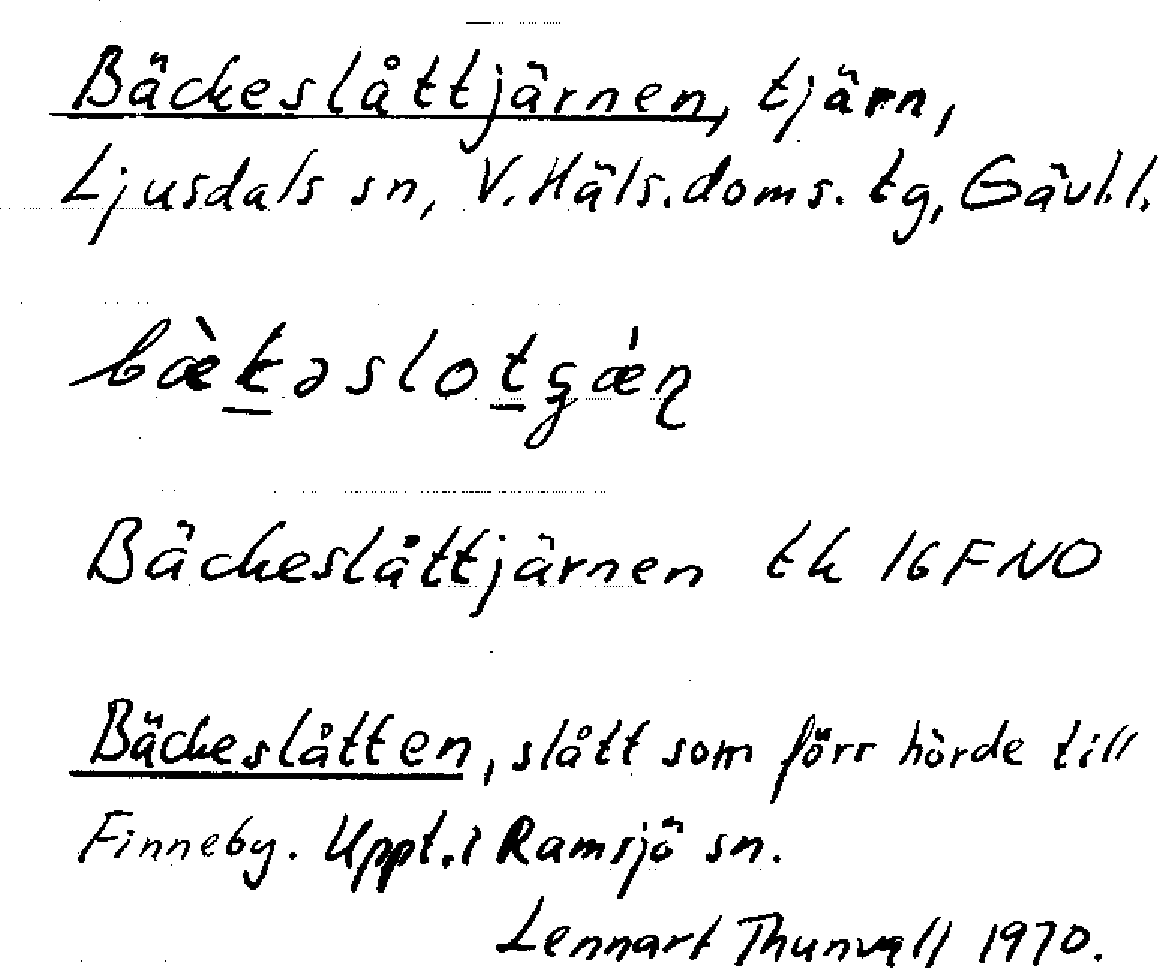 Bäckeslåttjärnen, tjärn,
Ljusdals sn, V. Häls. doms. tg, Gävl.l.
bæ̀k̠əslot̠ʒǽɳ
Bäckeslåttjärnen tk 16FNO
Bäckeslåtten, slått som förr hörde till
Finneby. Uppt. i Ramsjö sn.
Lennart Thunvall 1970.